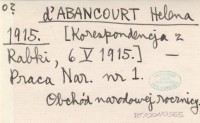 o2
d'ABANCOURT Helena
1915. [Korespondencja z
Rabki, 6 V 1915.] —
Praca Nar. nr 1.
Obchód narodowej rocznicy.